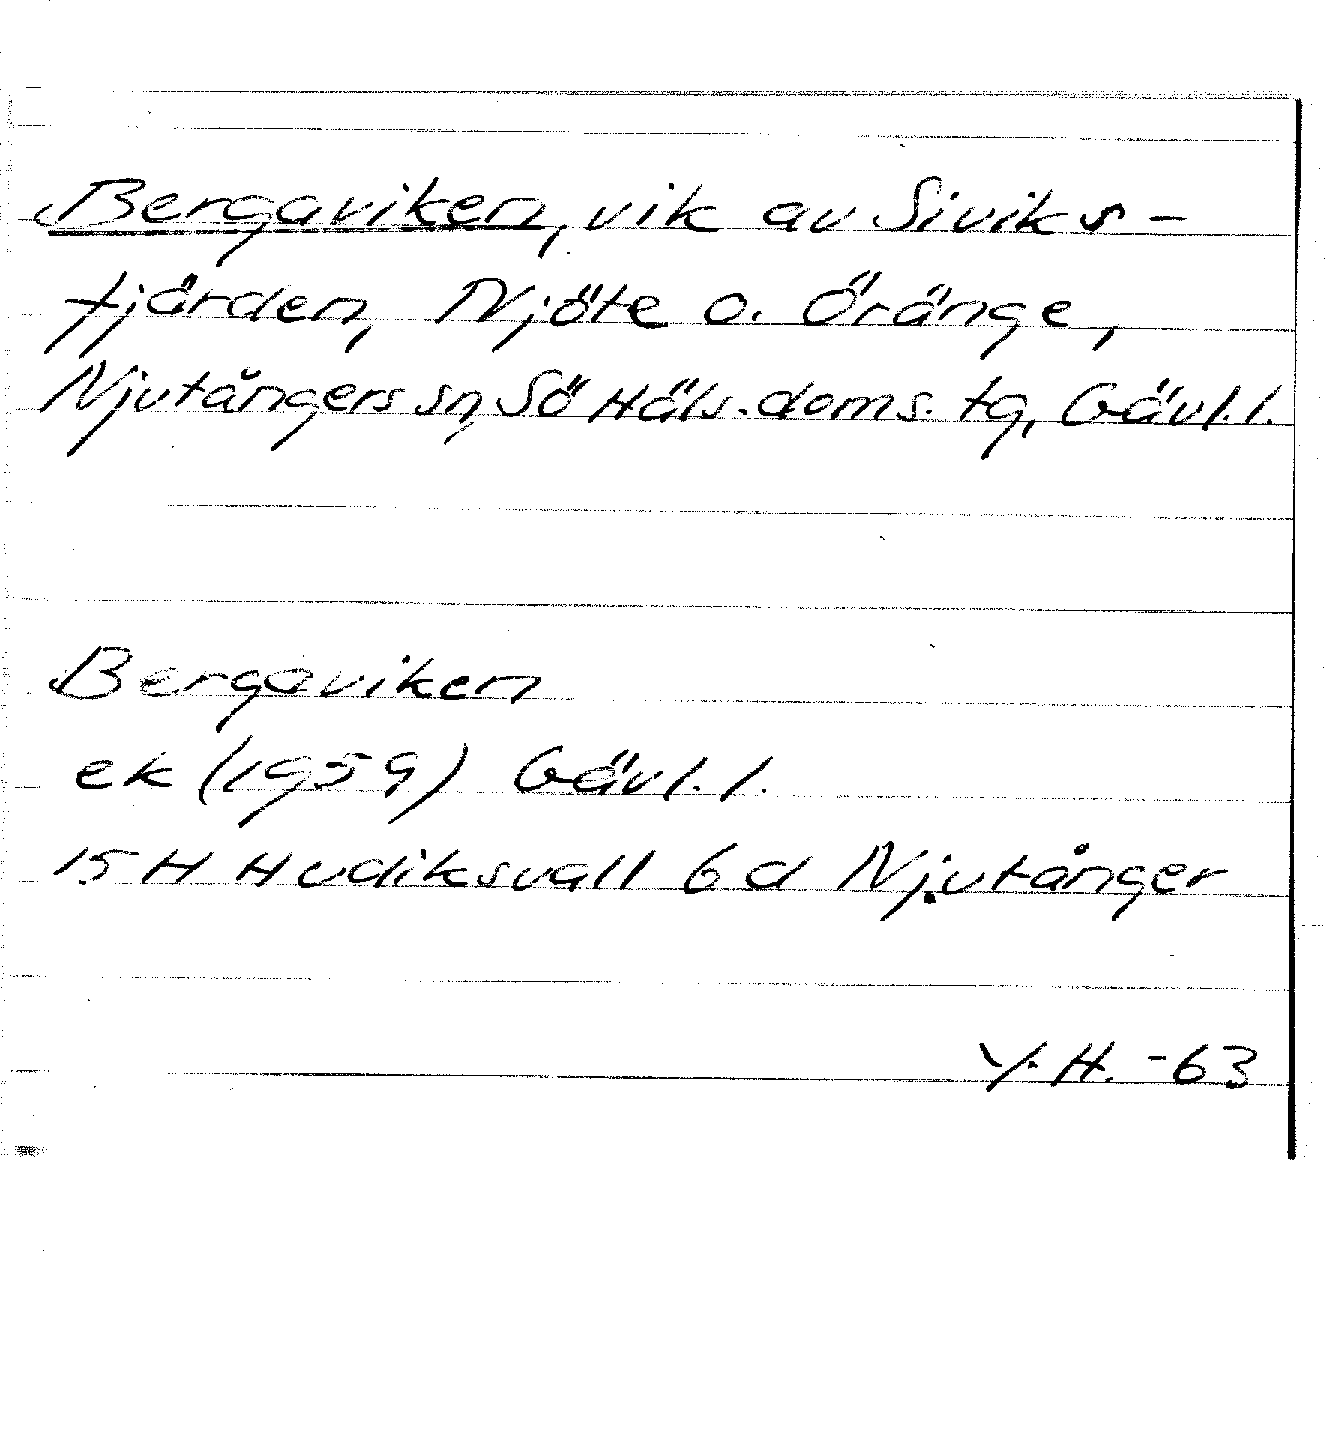 Bergaviken, vik av Siviks-
fjärden, Njöte o. Öränge,
Njutångers sn, Sö Häls. doms. tg, Gävl. l.
Bergaviken
ek (1959) Gävl. l.
15 H Hudiksvall 6 d Njutånger
Y. H. -63